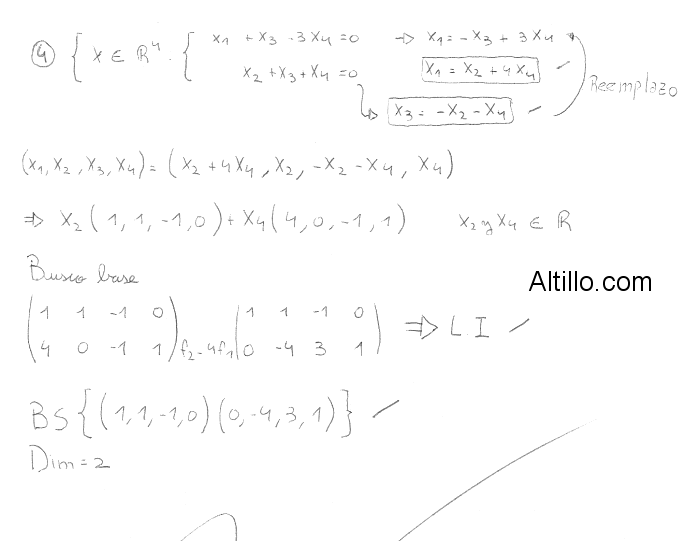 ④ { X ∈ R⁴ : { x₁ + x₃ - 3x₄ = 0 → x₁ = -x₃ + 3x₄
x₂ + x₃ + x₄ = 0 x₁ = x₂ + 4x₄
→ x₃ = -x₂ - x₄ Reemplazo
(x₁, x₂, x₃, x₄) = (x₂ + 4x₄, x₂, -x₂ - x₄, x₄)
⇒ x₂ (1, 1, -1, 0) + x₄ (4, 0, -1, 1) x₂ y x₄ ∈ R
Busco base
Altillo.com
(1 1 -1 0) (1 1 -1 0) ⇒ L.I
(4 0 -1 1) f₂-4f₁ (0 -4 3 1)
BS {(1, 1, -1, 0) (0, -4, 3, 1)}
Dim = 2